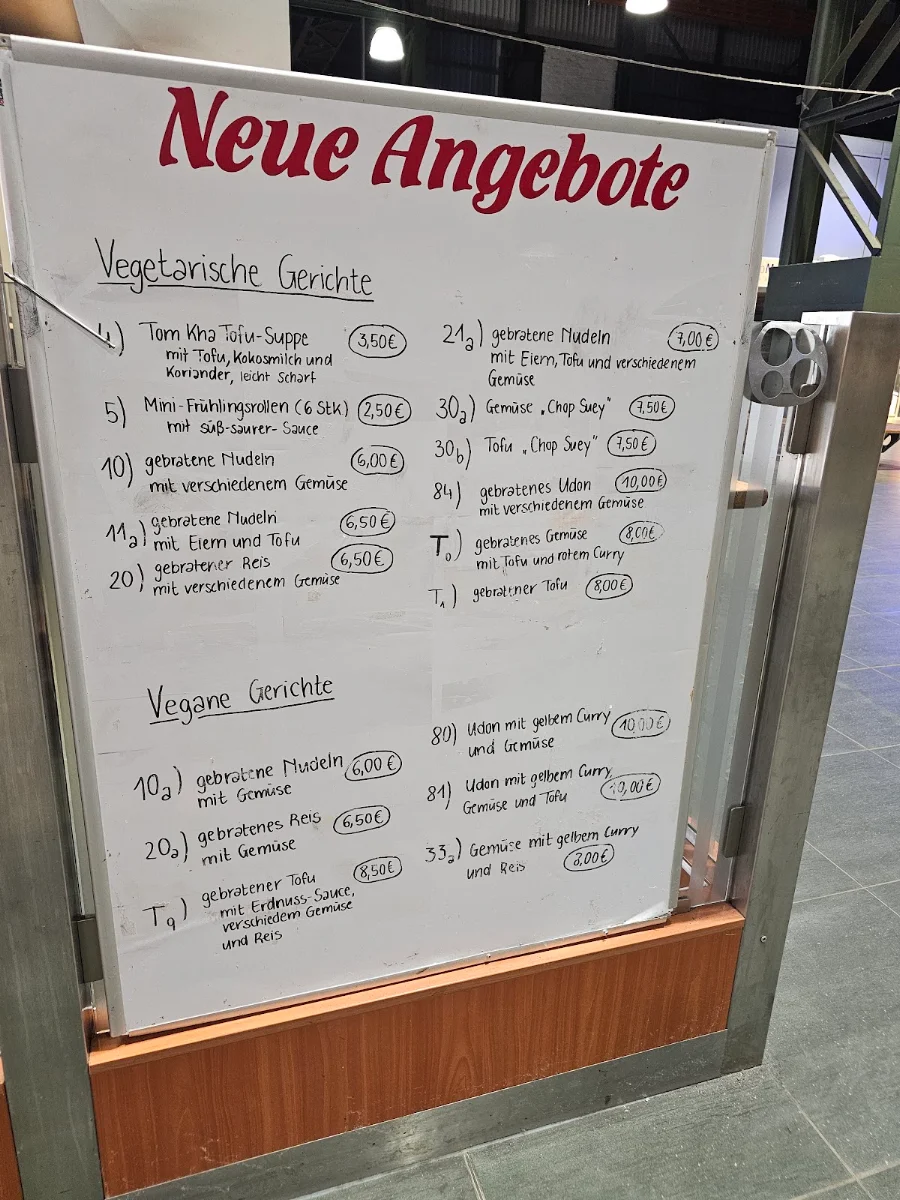 Neue Angebote
Vegetarische Gerichte
4) Tom Kha Tofu-Suppe 3,50€
mit Tofu, Kokosmilch und
Koriander, leicht Scharf
5) Mini-Frühlingsrollen (6 Stk) 2,50€
mit süß-saurer-Sauce
10) gebratene Nudeln 6,00€
mit verschiedenem Gemüse
11a) gebratene Nudeln 6,50€
mit Eiern und Tofu
20) gebratener Reis 6,50€
mit verschiedenem Gemüse
21a) gebratene Nudeln 7,00€
mit Eiern, Tofu und verschiedenem
Gemüse
30a) Gemüse „Chop Suey" 7,50€
30b) Tofu „Chop Suey" 7,50€
84) gebratenes Udon 10,00€
mit verschiedenem Gemüse
T0) gebratenes Gemüse 8,00€
mit Tofu und rotem Curry
T1) gebratner Tofu 8,00€
Vegane Gerichte
10a) gebratene Nudeln 6,00€
mit Gemüse
20a) gebratenes Reis 6,50€
mit Gemüse
T9) gebratener Tofu 8,50€
mit Erdnuss-Sauce,
verschiedem Gemüse
und Reis
80) Udon mit gelbem Curry 10,00€
und Gemüse
81) Udon mit gelbem Curry,
Gemüse und Tofu 10,00€
33a) Gemüse mit gelbem Curry
und Reis